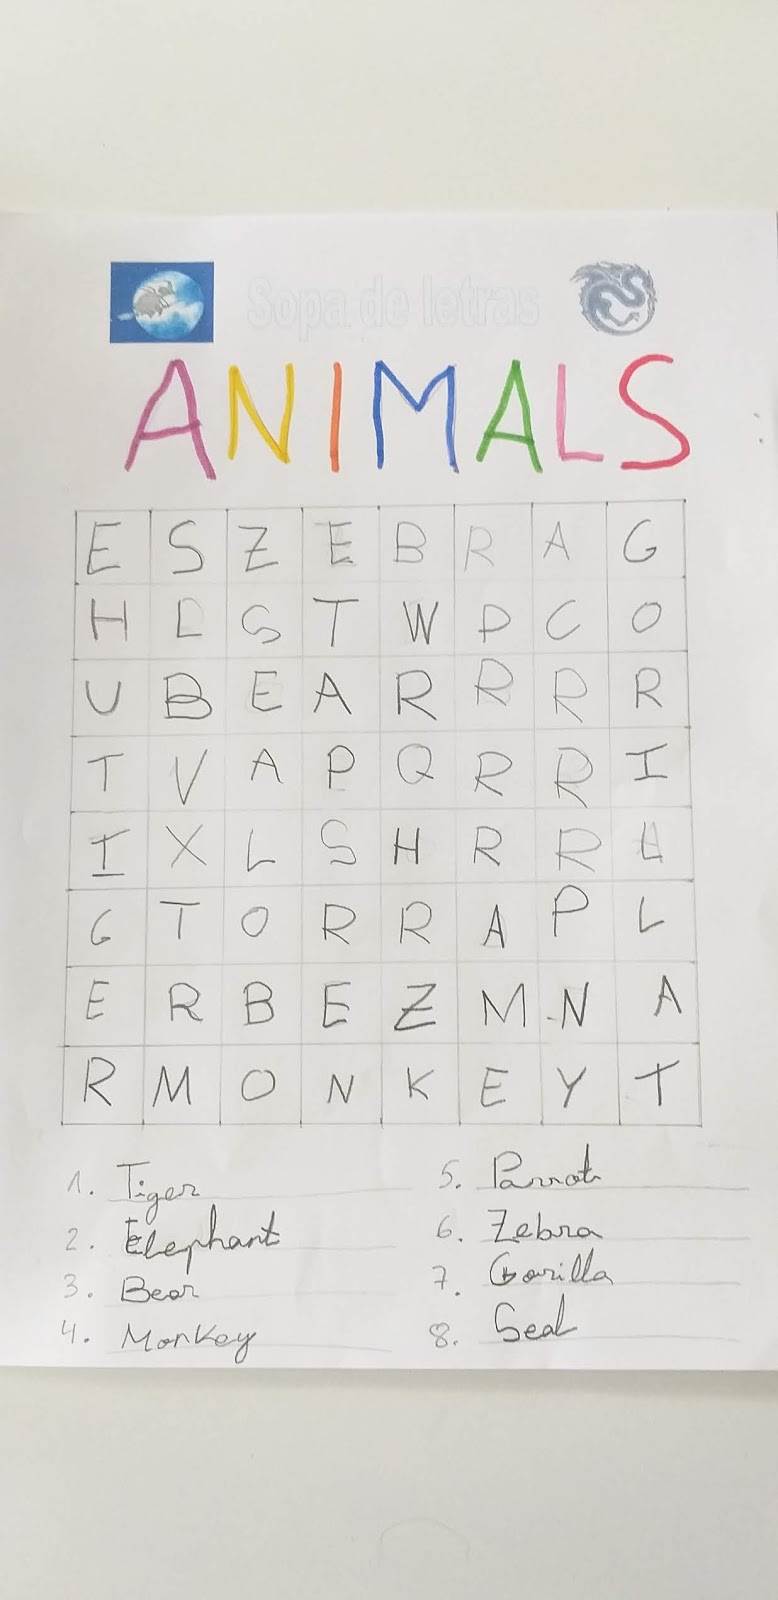 Sopa de letras
ANIMALS
E S Z E B R A G
H L S T W P C O
U B E A R R R R
T V A P Q R R I
I X L S H R R L
G T O R R A P L
E R B E Z M N A
R M O N K E Y T
1. Tiger 5. Parrot
2. Elephant 6. Zebra
3. Bear 7. Gorilla
4. Monkey 8. Seal